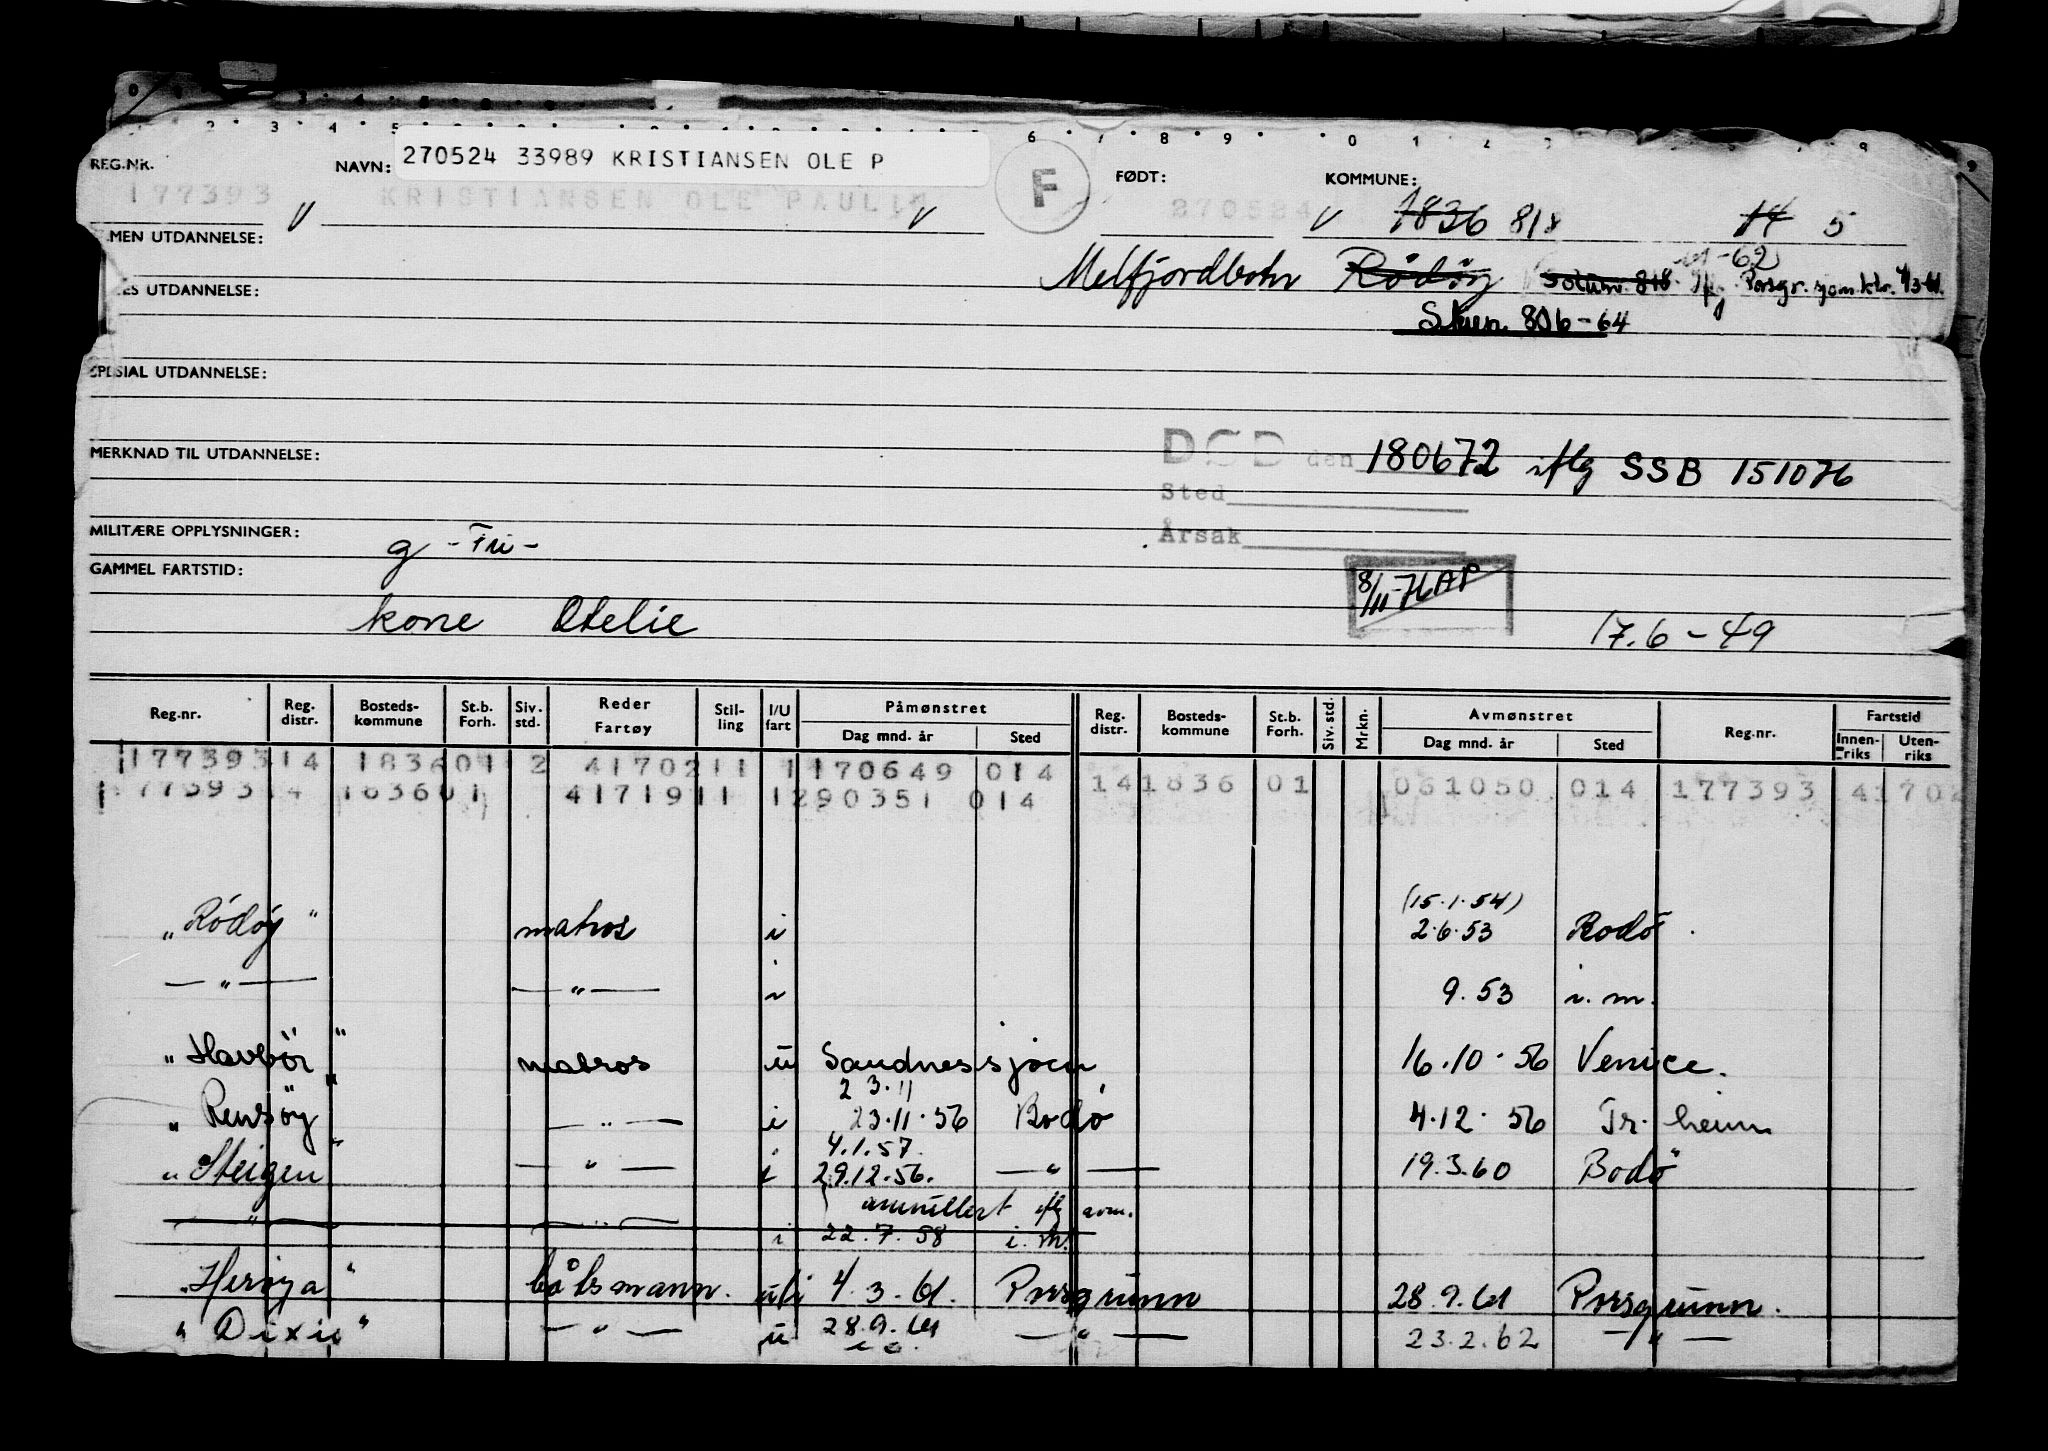 REG.NR. NAVN: 270524 33989 KRISTIANSEN OLE P F FØDT: KOMMUNE:
177393 V KRISTIANSEN OLE PAULIN V 270524 V 1836 818 14 5
MEN UTDANNELSE:
Melfjordbotn Rödöy Solum 818 -62 Porsgr. 4/3-61.
ES UTDANNELSE:
Skien 806-64
SPESIAL UTDANNELSE:
MERKNAD TIL UTDANNELSE:
DØD den 180672 iflg SSB 151076
Sted
MILITÆRE OPPLYSNINGER: g - Fri -
Årsak
GAMMEL FARTSTID:
8/11-76 AP
kone Otelie 17.6-49
Reg.nr. Reg. distr. Bosteds- kommune St.b. Forh. Siv. std. Reder Fartøy Stil- ling I/U fart Påmønstret Dag mnd. år Sted Reg. distr. Bosteds- kommune St.b. Forh. Siv. std. Mrkn. Avmønstret Dag mnd. år Sted Reg.nr. Fartstid Innen- riks Uten- riks
177393 14 1836 01 2 4170211 1 170649 014 14 1836 01 061050 014 177393 41702
177393 14 1836 01 4171911 1 290351 014
(15.1.54)
"Rödöy" matros i 2.6.53 Bodö
— " — — " — i 9.53 i. m.
"Havbör" matros u Sandnessjöen 16.10.56 Venice.
23.11
"Rensöy" — " — i 23.11.56 Bodö 4.12.56 Tr.heim
4.1.57.
"Steigen" — " — i 29.12.56. — " — 19.3.60 Bodö
annullert iflg avm.
— " — — " — i 22.7.58 i. m.
"Heröya" båtsmann. u/i 4.3.61. Porsgrunn 28.9.61 Porsgrunn.
"Dixie" — " — u 28.9.61 — " — 23.2.62 — " —